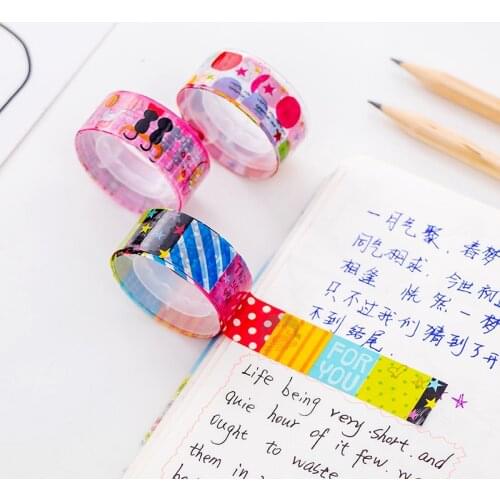 一月气聚，春梦
同气相求，今世初
相逢 恍然一梦
只不过我们猜到了开
不到结尾。
FOR
YOU
Life being very short. and
quie hour of it few. we
ought to waste
them in